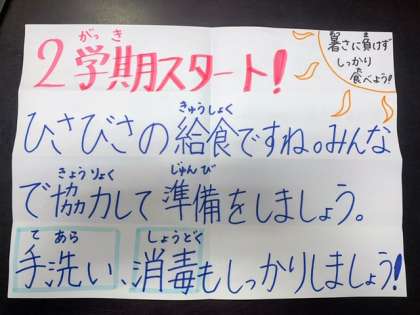 がっき
2学期スタート!
暑さに負けず
しっかり
た
食べよう!
きゅうしょく
ひさびさの給食ですね。みんな
きょうりょく じゅんび
で協力して準備をしましょう。
て あら しょうどく
手洗い、消毒もしっかりしましょう!